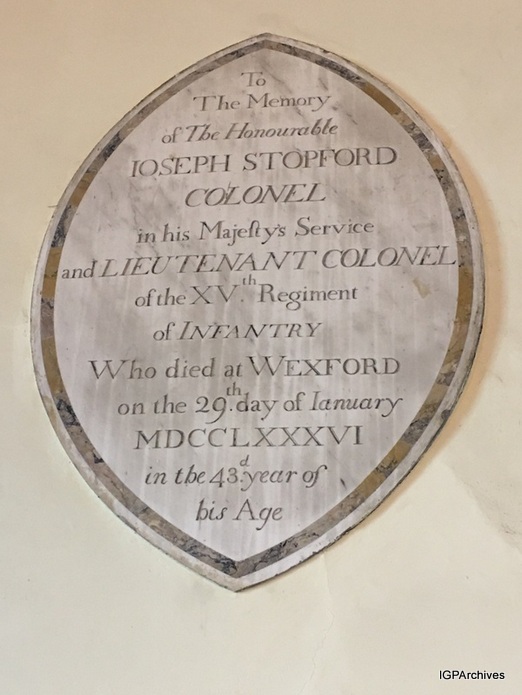 To
The Memory
of The Honourable
IOSEPH STOPFORD
COLONEL
in his Majeſty's Service
and LIEUTENANT COLONEL
of the XV.th Regiment
of INFANTRY
Who died at WEXFORD
on the 29.th day of Ianuary
MDCCLXXXVI
in the 43.d year of
his Age
IGPArchives